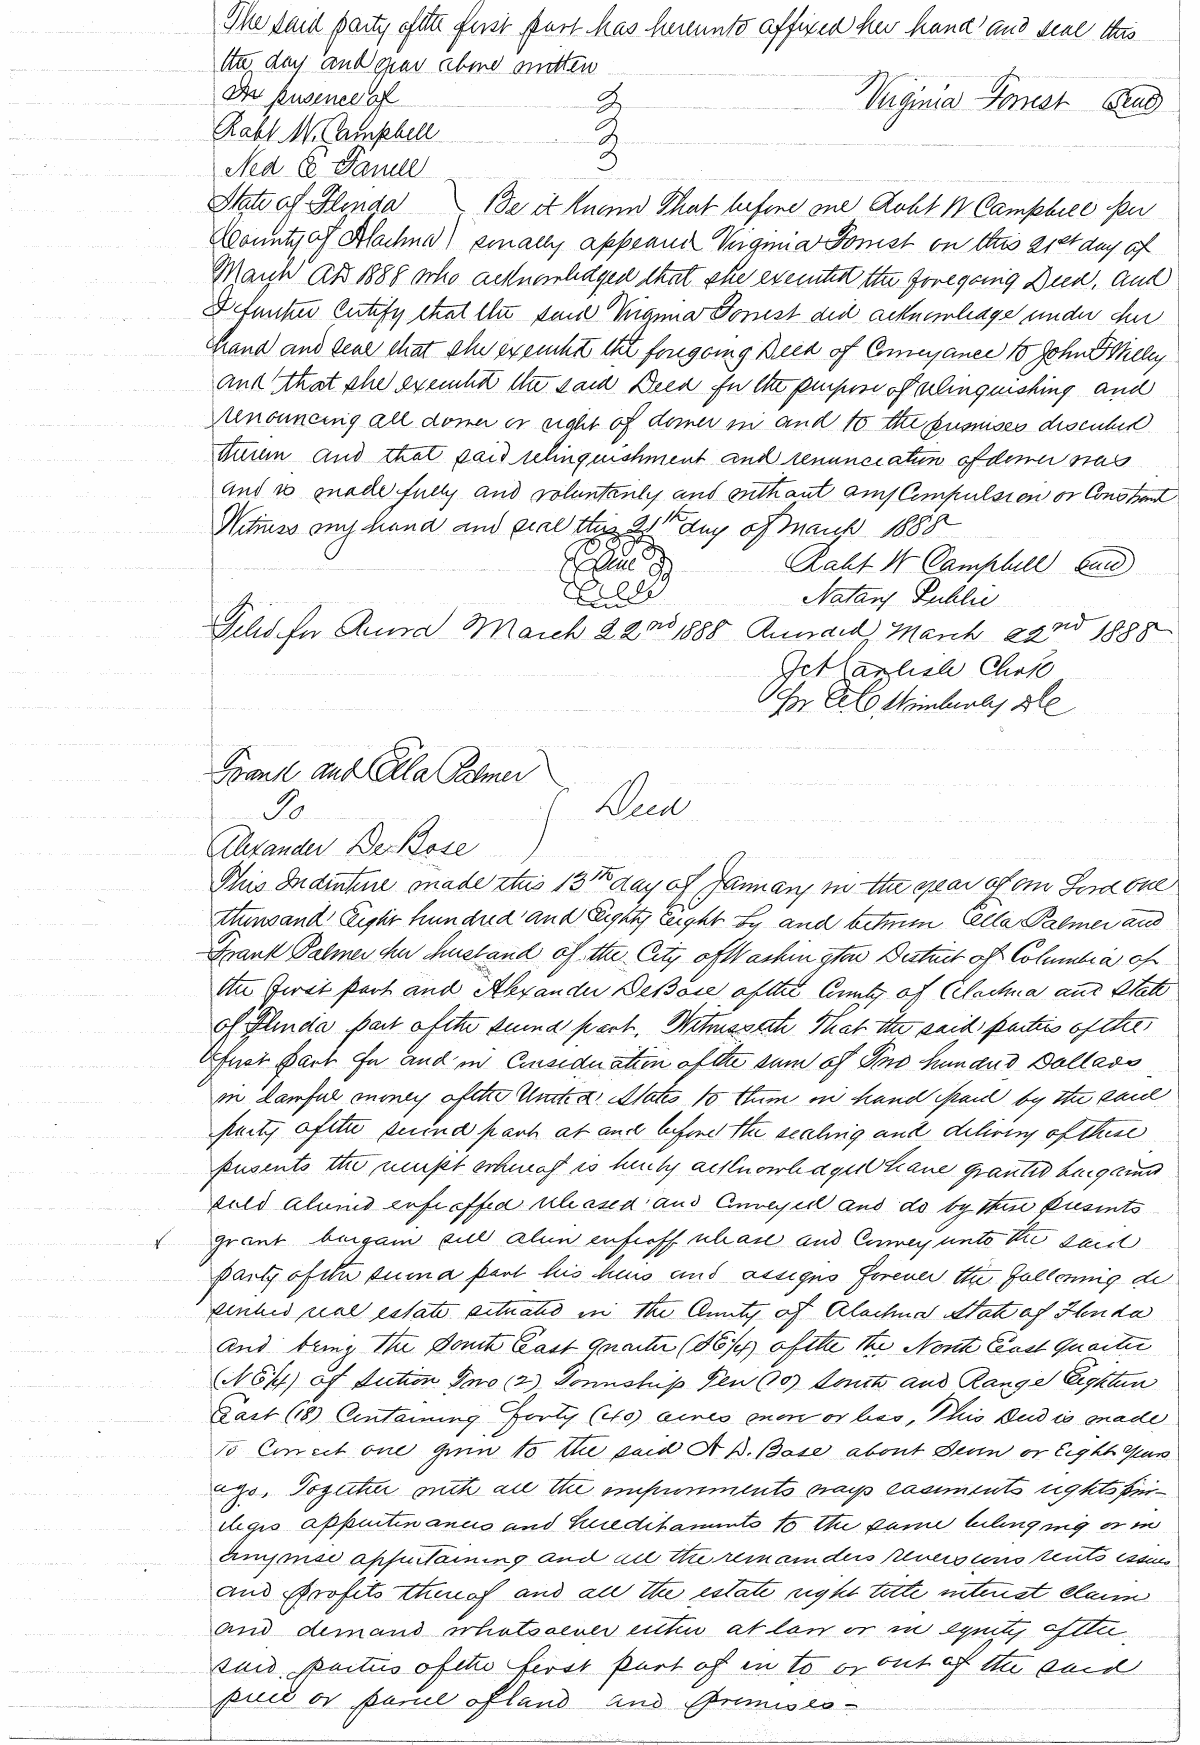 The said party of the first part has hereunto affixed her hand and seal this
the day and year above written
In presence of
Virginia Forrest Seal
Robt W. Campbell
Ned E
State of Florida Be it Known That before me Robt W Campbell per
County of Alachua sonally appeared Virginia Forrest on this 21st day of
March AD 1888 who acknowledged that she executed the foregoing Deed, and
I further Certify that the said Virginia Forrest did acknowledge under her
hand and seal that she executed the foregoing Deed of Conveyance to John F Willey
and that she executed the said Deed for the purpose of relinquishing and
renouncing all dower or right of dower in and to the premises described
therein and that said relinquishment and renunciation of dower was
and is made freely and voluntarily and without any Compulsion or Constraint
Witness my hand and seal this 21th day of March 1888
Seal Robt W Campbell Seal
Notary Public
Filed for Record March 22nd 1888 Recorded March 22nd 1888
Carlisle Clerk
Per Wimberly DC
Frank and Ella Palmer
To Deed
Alexander DeBose
This Indenture made this 13th day of January in the year of our Lord one
thousand Eight hundred and Eighty Eight by and between Ella Palmer and
Frank Palmer her husband of the City of Washington District of Columbia of
the first part and Alexander DeBose of the County of Alachua and State
of Florida part of the second part, Witnesseth That the said parties of the
first part for and in Consideration of the sum of Two hundred Dollars
in lawful money of the United States to them in hand paid by the said
party of the second part at and before the sealing and delivery of these
presents the receipt whereof is hereby acknowledged have granted bargained
sold aliened enfeoffed released and Conveyed and do by these presents
grant bargain sell alien enfeoff release and Convey unto the said
party of the second part his heirs and assigns forever the following de
scribed real estate situated in the County of Alachua State of Florida
and being the South East quarter (SE¼) of the the North East quarter
(NE¼) of Section Two (2) Township Ten (10) South and Range Eighteen
East (18) Containing forty (40) acres more or less, This Deed is made
to Correct one given to the said A D. Bose about Seven or Eight years
ago. Together with all the improvements ways easements rights priv-
ileges appurtenances and hereditaments to the same belonging or in
anywise appertaining and all the remainders reversions rents issues
and profits thereof and all the estate right title interest claim
and demand whatsoever either at law or in equity of the
said parties of the first part of in to or out of the said
piece or parcel of land and premises -